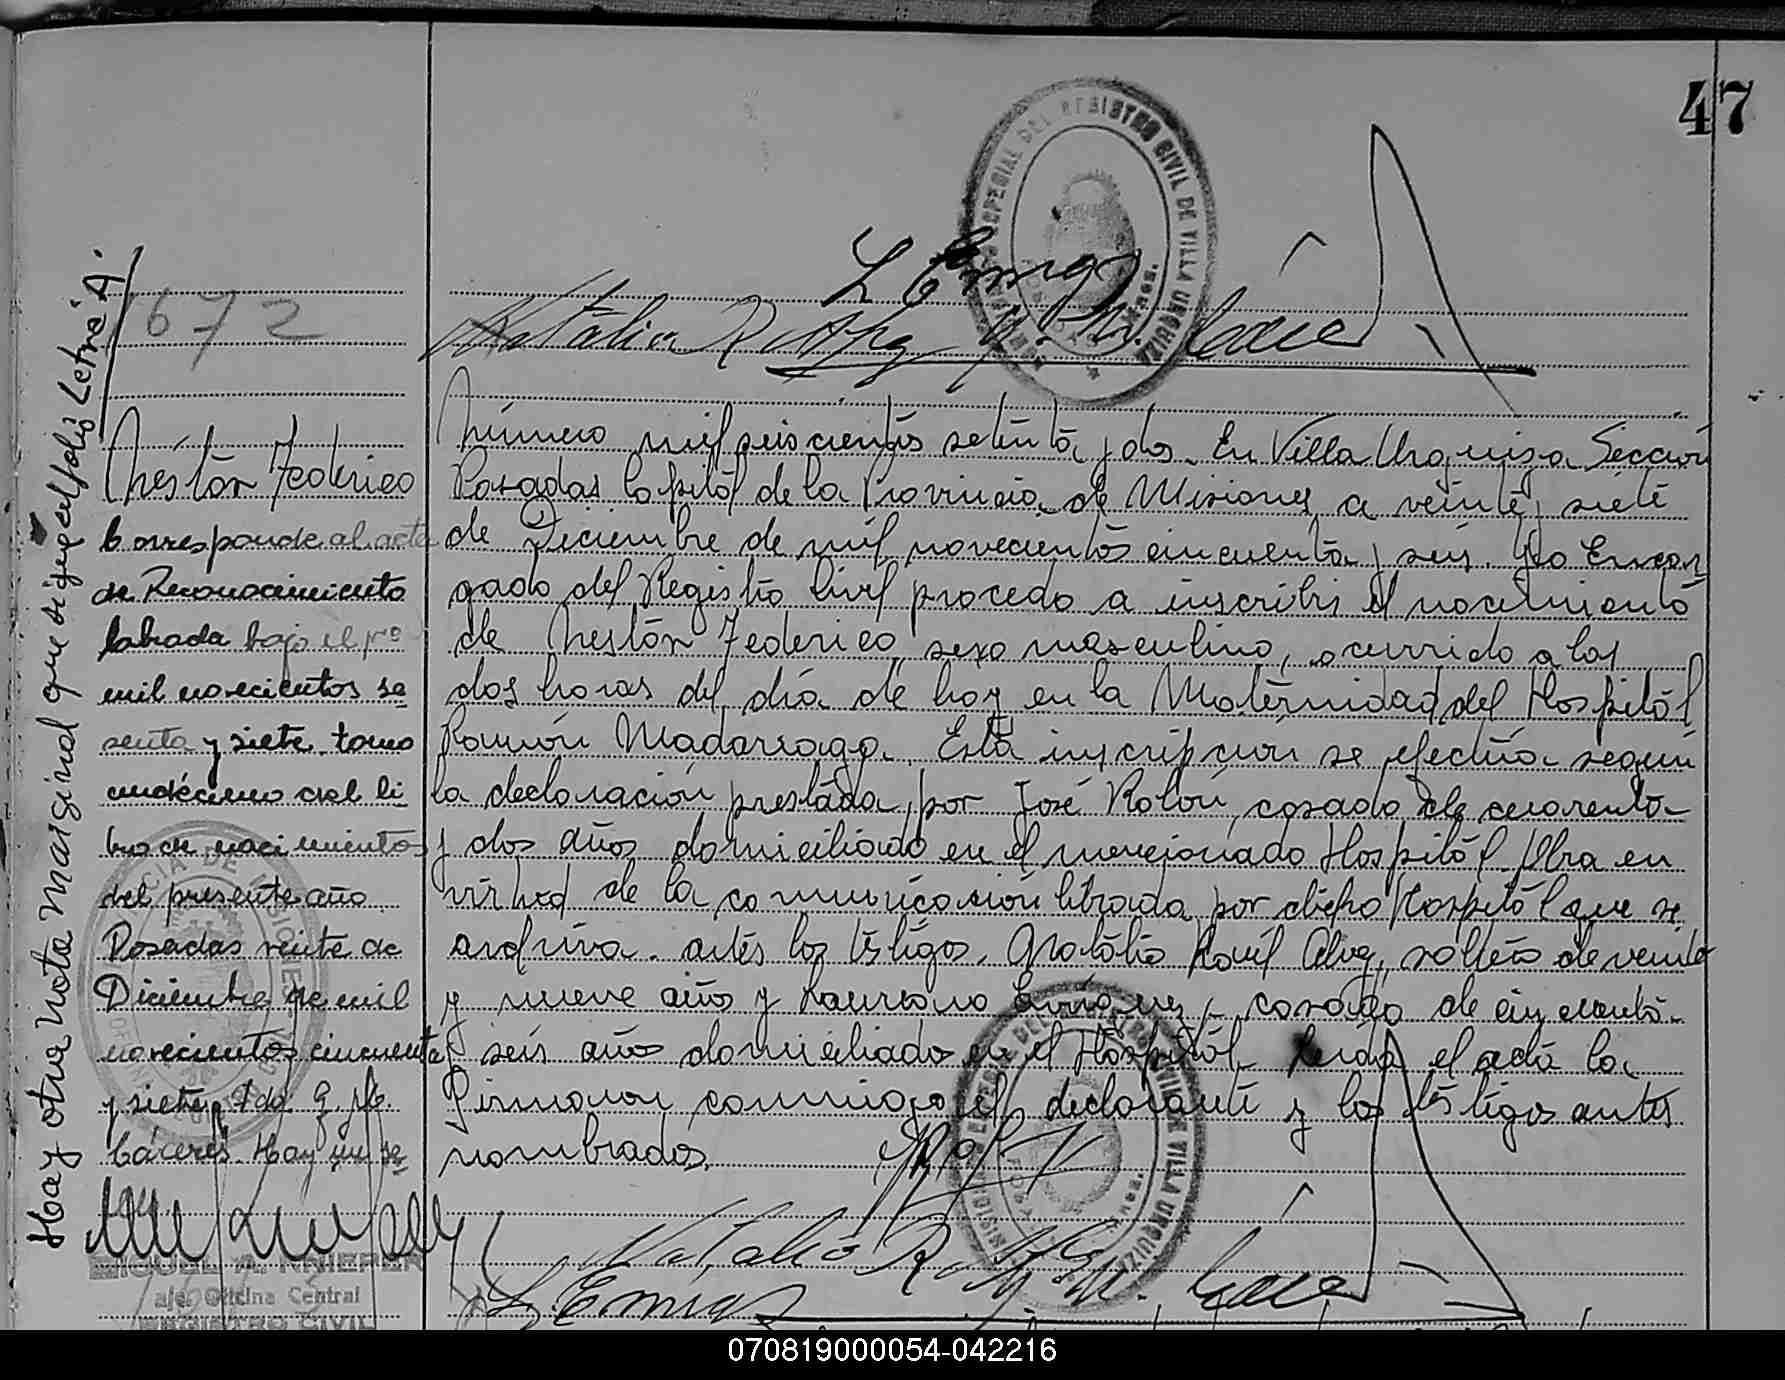 47
REGISTRO CIVIL DE VILLA URQUIZA
L Enriqz
Natalio R Alvz
Cáceres
Hay otra nota marginal que sigue al folio Letra A.
1672
Néstor Federico
Corresponde al acta
de Reconocimiento
labrada bajo el nº
mil novecientos se
senta y siete tomo
undécimo del li
bro de nacimientos
del presente año
Posadas veinte de
Diciembre de mil
novecientos cincuenta
y siete. Fdo. G. M.
Cáceres. Hay un se
llo.
MIGUEL A. KNIEPER
a/c. Oficina Central
REGISTRO CIVIL
Número mil seiscientos setenta y dos. En Villa Urquiza Sección
Posadas Capitál de la Provincia de Misiones a veinte y siete
de Diciembre de mil novecientos cincuenta y seis. Yo Encar
gado del Registro Civil procedo a inscribir el nacimiento
de Nestór Federico, sexo masculino, ocurrido a las
dos horas del día de hoy en la Maternidad del Hospitál
Ramón Madarraga. Esta inscripción se efectúa según
la declaración prestada, por José Rolón, casado de cuarenta
y dos años domiciliado en el mencionado Hospitál. Obra en
virtud de la comunicación librada por dicho Hospitál que se
archiva. antes los testigos, Natalio Raúl Alvz, soltero de veinte
y nueve años y Laureano Enríquez, casado de cincuenta
y seis años domiciliados en el Hospitál. Leida el acta la
firmaron conmigo el declarante y los testigos antes
nombrados.
REGISTRO CIVIL DE VILLA URQUIZA
Natalio R Alvz
L. Enriqz
Cáceres
070819000054-042216